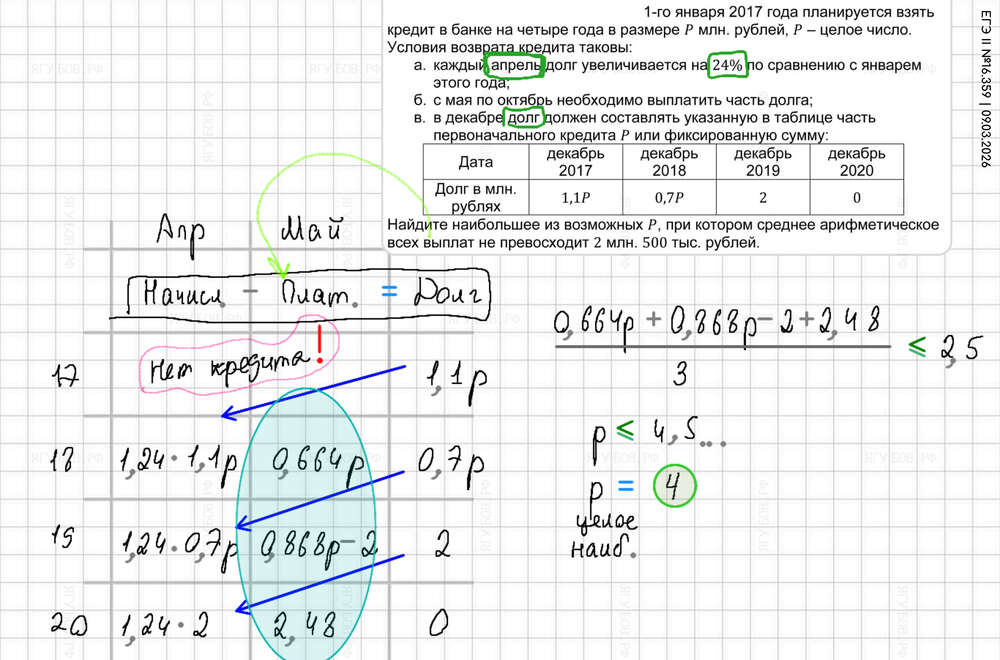 1-го января 2017 года планируется взять
кредит в банке на четыре года в размере P млн. рублей, P – целое число.
Условия возврата кредита таковы:
а. каждый апрель долг увеличивается на 24% по сравнению с январем
этого года;
б. с мая по октябрь необходимо выплатить часть долга;
в. в декабре долг должен составлять указанную в таблице часть
первоначального кредита P или фиксированную сумму:
Дата декабрь 2017 декабрь 2018 декабрь 2019 декабрь 2020
Долг в млн. рублях 1,1P 0,7P 2 0
Найдите наибольшее из возможных P, при котором среднее арифметическое
всех выплат не превосходит 2 млн. 500 тыс. рублей.
ЕГЭ II №16.359 | 09.03.2026
Апр Май
Начисл. − Плат. = Долг
Нет кредита!
17 1,1p
18 1,24·1,1p 0,664p 0,7p
19 1,24·0,7p 0,868p−2 2
20 1,24·2 2,48 0
0,664p + 0,868p − 2 + 2,48
3
≤ 2,5
p ≤ 4,5...
p = 4
целое
наиб.